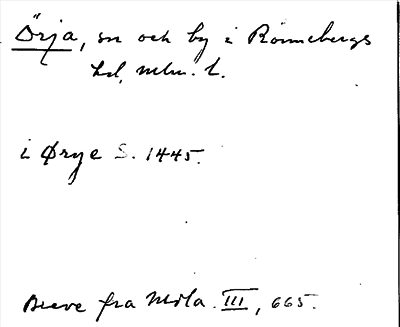 Örja, sn och by i Rönnebergs
hd, Mlm. l.
i Ørye S. 1445.
Breve fra Mda. III, 665.